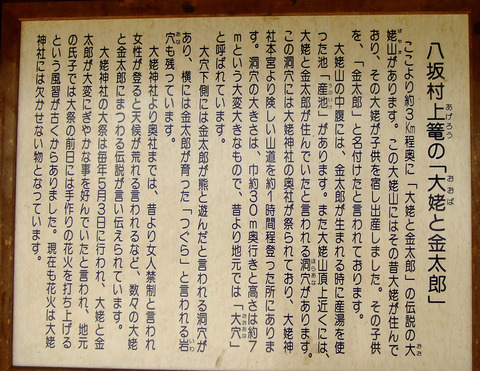 八坂村上篭の「大姥と金太郎」
あげろう
おおば
ここより約3Km程奥に「大姥と金太郎」の伝説の大
おお
姥山があります。この大姥山にはその昔大姥が住んで
ばやま
おり、その大姥が子供を宿し出産しました。その子供
を、「金太郎」と名付けたと言われております。
大姥山の中腹には、金太郎が生まれる時に産湯を使
った池「産池」があります。また大姥山頂上近くには、
大姥と金太郎が住んでいたと言われる洞穴があります。
ほらあな
この洞穴には大姥神社の奥社が祭られており、大姥神
社本宮より険しい山道を約1時間程登った所にありま
す。洞穴の大きさは、巾約30m奥行きと高さは約7
mという大変大きなもので、昔より地元では「大穴」
おおあな
と呼ばれています。
大穴下側には金太郎が熊と遊んだと言われる洞穴が
あり、横には金太郎が育った「つぐら」と言われる岩
いわ
穴も残っています。
あな
大姥神社より奥社までは、昔より女人禁制と言われ
女性が登ると天候が荒れる言われるなど、数々の大姥
と金太郎にまつわる伝説が言い伝えられています。
大姥神社の大祭は毎年5月3日に行われ、大姥と金
太郎が大変にぎやかな事を好んでいたと言われ、地元
の氏子では大祭の前日には手作りの花火を打ち上げる
という風習が古くからありました。現在も花火は大姥
神社には欠かせない物となっています。